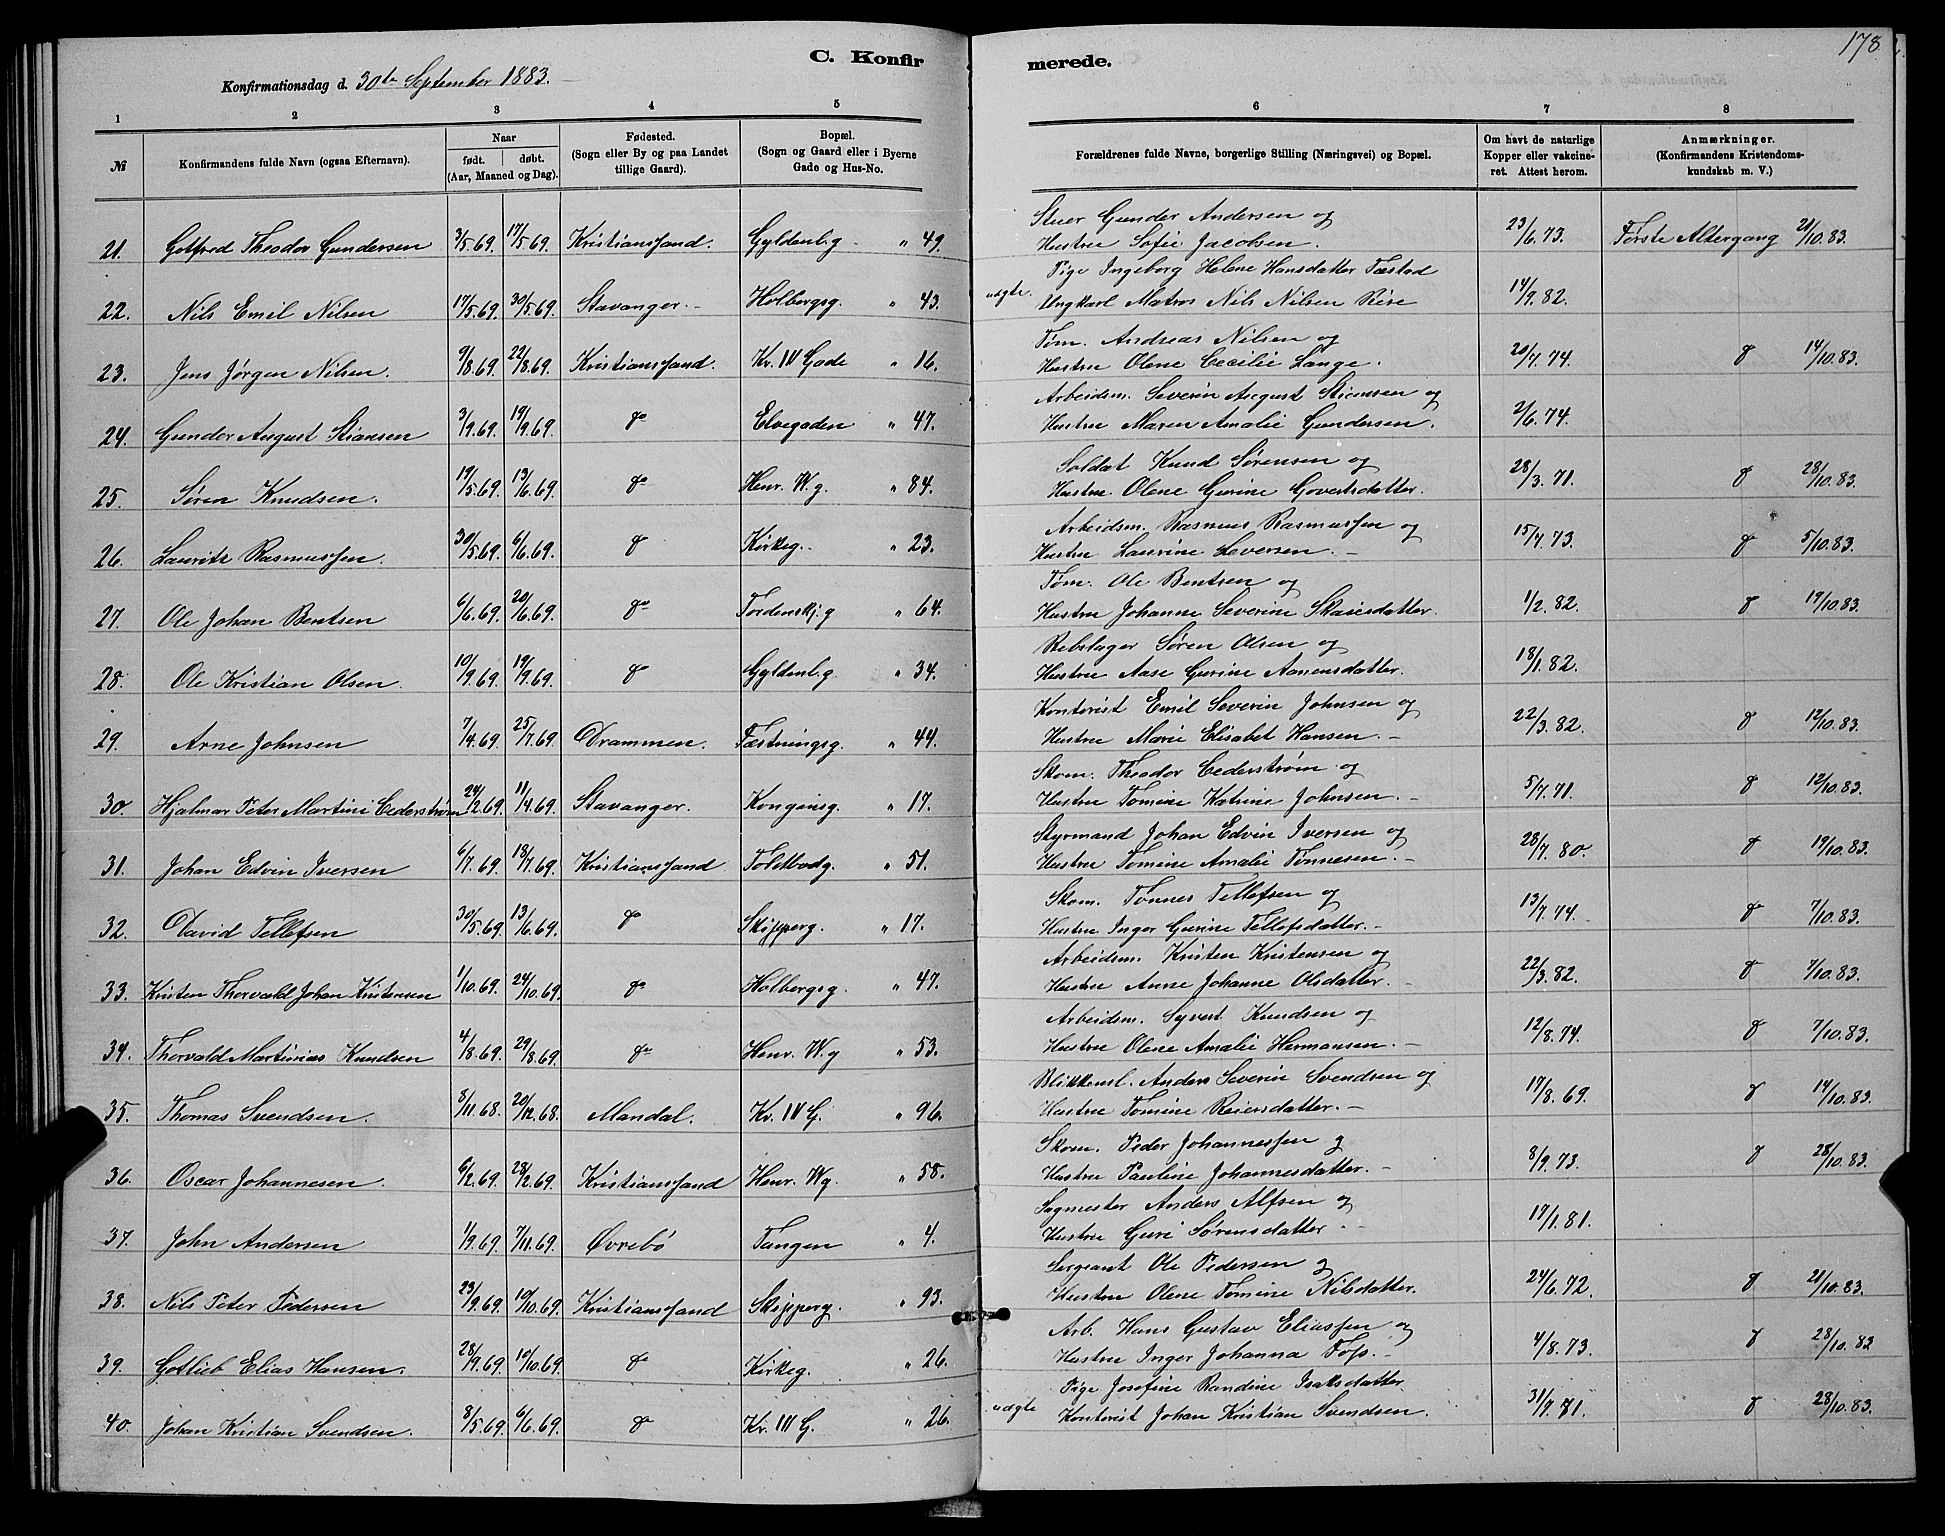 178
C. Konfirmerede.
Konfirmationsdag d. 30te September 1883.
1 2 3 4 5 6 7 8
№ Konfirmandens fulde Navn (ogsaa Efternavn). Naar født. døbt. (Aar, Maaned og Dag). Fødested. (Sogn eller By og paa Landet tillige Gaard). Bopæl. (Sogn og Gaard eller i Byerne Gade og Hus-No. Forældrenes fulde Navne, borgerlige Stilling (Næringsvei) og Bopæl. Om havt de naturlige Kopper eller vakcineret. Attest herom. Anmærkninger. (Konfirmandens Kristendomskundskab m. V.)
21. Gotfred Theodor Gundersen 3/5.69. 17/5.69. Kristianssand. Gyldenl.g. " 49. Stuer Gunder Andersen og
Hustru Sofie Jacobsen. 23/6.73. Første Altergang 21/10.83.
22. Nils Emil Nilsen 17/5.69. 30/5.69. Stavanger. Holbergsg. " 43. uægte. Pige Ingeborg Helene Hansdatter Fæstad
Ungkarl Matros Nils Nilsen Reise 14/9.82.
23. Jens Jørgen Nilsen. 9/8.69. 22/8.69. Kristianssand. Kr. IV Gade " 16. Tøm. Andreas Nilsen og
Hustru Olene Cecilie Lange. 20/7.74. do 14/10.83.
24. Gunder August Stiansen 3/9.69. 19/9.69. do Elvegaden " 47. Arbeidsm. Severin August Stiansen og
Hustru Maren Amalie Gundersen. 2/6.74.
25. Søren Knudsen. 19/5.69. 13/6.69. do Henr. W. g. " 84. Soldat Knud Sørensen og
Hustru Olene Gurine Govertsdatter. 28/3.71. do 28/10.83.
26. Lauritz Rasmussen. 30/5.69. 6/6.69. do Kirkeg. " 23. Arbeidsm. Rasmus Rasmussen og
Hustru Laurine Larsen. 15/7.73. do 5/10.83.
27. Ole Johan Bentsen 6/6.69. 20/6.69. do Tordenskj.g " 64. Tøm. Ole Bentsen og
Hustru Johanne Severine Skaiesdatter. 1/2.82. do 19/10.83.
28. Ole Kristian Olsen. 10/9.69. 19/9.69. do Gyldenl.g " 34. Rebslager Søren Olsen og
Hustru Aase Gurine Aanensdatter. 18/1.82.
29. Arne Johnsen 7/4.69. 25/7.69. Drammen. Fæstningsg. " 44. Kontorist Emil Severin Johnsen og
Hustru Marie Elisabet Hansen. 22/3.82. do 12/10.83.
30. Hjalmar Peter Martini Cederstrøm 24/2.69. 11/4.69. Stavanger. Kongensg. " 17. Skom. Theodor Cederstrøm og
Hustru Tomine Katrine Johnsen. 5/7.71. do 12/10.83.
31. Johan Edvin Iversen 6/7.69. 18/7.69. Kristianssand Toldbodg. " 51. Styrmand Johan Edvin Iversen og
Hustru Tomine Amalie Tønnesen. 28/7.80. do 19/10.83.
32. David Tellefsen 30/5.69. 13/6.69. do Skipperg. " 17. Skom. Tønnes Tellefsen og
Hustru Inger Gurine Tellefsdatter. 13/7.74. do 7/10.83.
33. Kristen Thorvald Johan Kristensen 1/10.69. 24/10.69. do Holbergsg. " 47. Arbeidsm. Kristen Kristensen og
Hustru Anne Johanne Olsdatter. 22/3.82. do 7/10.83.
34. Thorvald Martinius Knudsen 4/8.69. 29/8.69. do Henr. W.g " 53. Arbeidsm. Syvert Knudsen og
Hustru Olene Amalie Hermansen. 12/8.74. do 7/10.83.
35. Thomas Svendsen. 8/11.68. 20/12.68. Mandal. Kr. IV G. " 96. Blikkensl. Anders Severin Svendsen og
Hustru Tomine Reiersdatter. 17/8.69. do 14/10.83.
36. Oscar Johannesen. 6/2.69. 28/2.69. Kristianssand Henr. Wg. " 58. Skom. Peder Johannessen og
Hustru Pauline Johannesdatter. 8/9.73. do 28/10.83.
37. John Andersen 1/9.69. 7/11.69. Øvrebø Tangen " 4. Sagmester Anders Alfsen og
Hustru Guri Sørensdatter 17/1.81.
38. Nils Peter Pedersen 23/9.69. 10/10.69. Kristianssand Skipperg. " 93. Sergeant Ole Pedersen og
Hustru Olene Tomine Nilsdatter. 24/6.72. do 21/10.83.
39. Gotlieb Elias Hansen. 28/9.69. 10/10.69 do Kirkeg. " 26. Arb. Hans Gustav Eliassen og
Hustru Inger Johanna Foss. 4/8.73. do 28/10.83
40. Johan Kristian Svendsen. 8/5.69. 6/6.69. do Kr. III G. " 26. uægte Pige Josefine Randine Isaksdatter
Kontorist Johan Kristian Svendsen. 31/7.71. do 28/10.83.